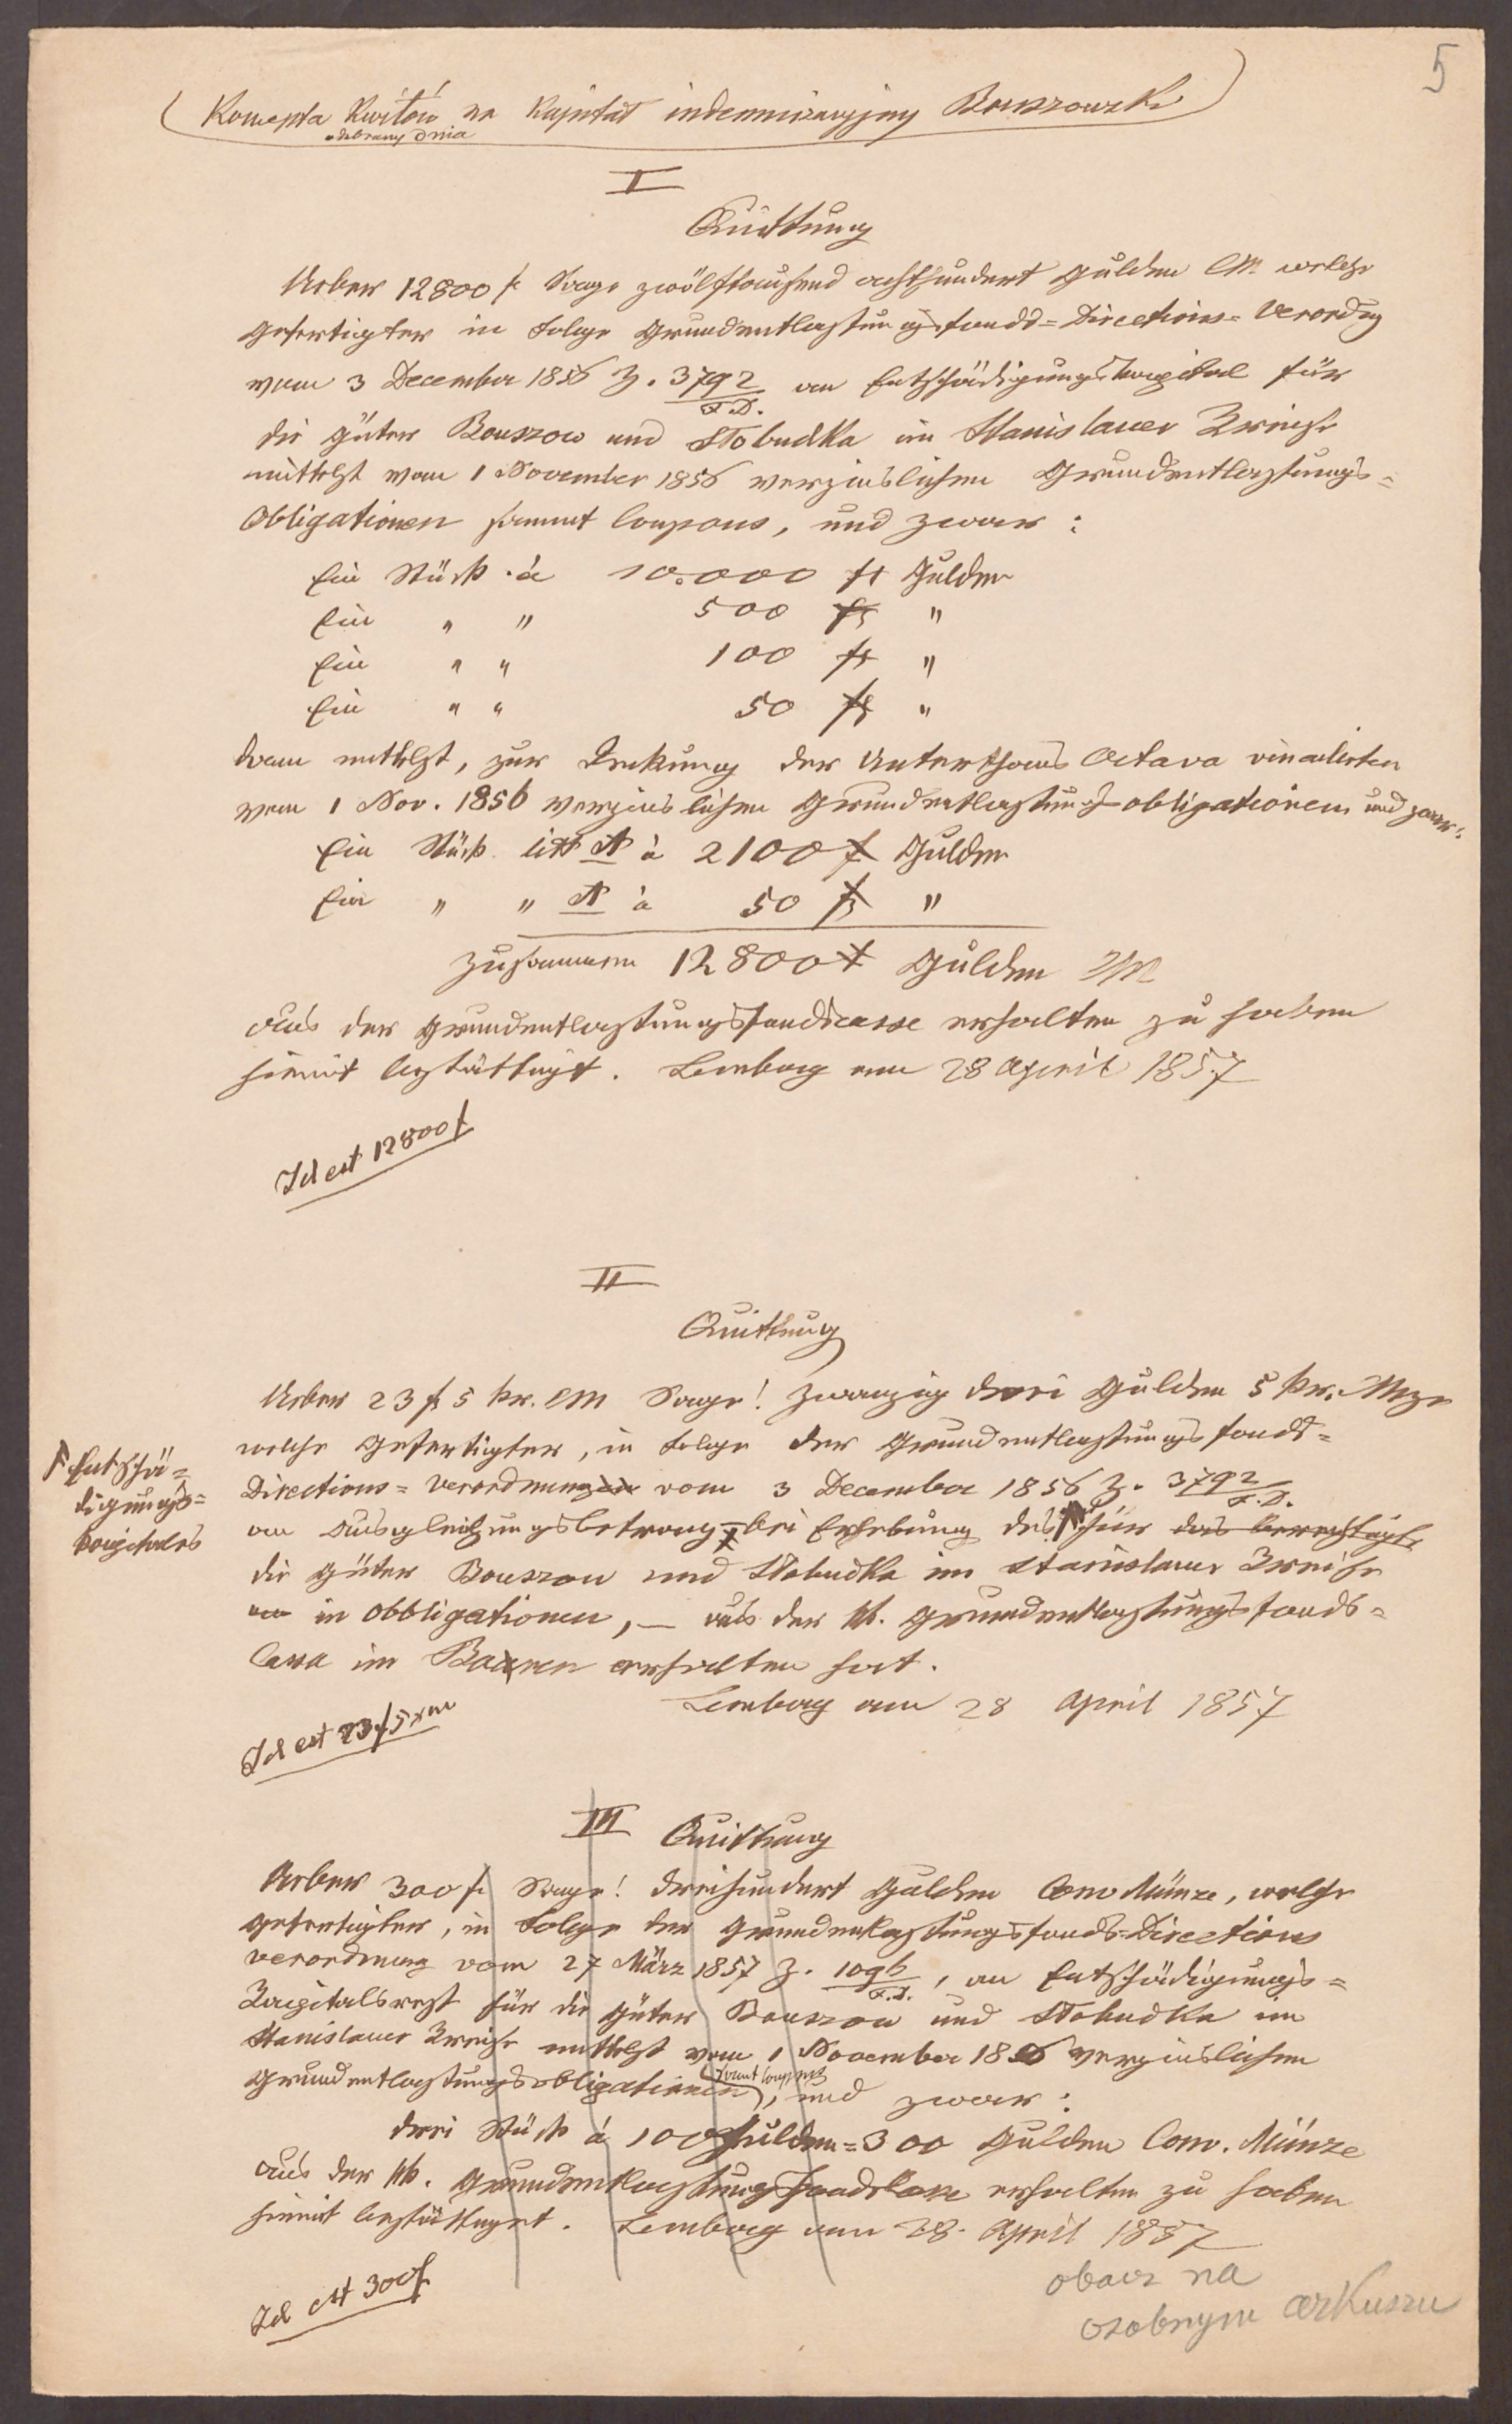 5
(Koncepta Kwitów na Kapitał indemnizacyjny Bouszowski)
odebrany dnia
I
Quittung
Ueber 12800 f Sage zwölftausend achthundert Gulden CM. welche
Gefertigter in Folge Grundentlastungsfonds=Directions=Verordng
vom 3 December 1856 Z. 3792/F.D. an Entschädigungskapital für
die Güter Bouszow und Słobudka im Stanislauer Kreise
mittelst vom 1 November 1856 verzinslichen Grundentlastungs=
Obligationen sammt Coupons, und zwar:
Ein Stück à 10.000 f Gulden
Ein " " 500 f "
Ein " " 100 f "
Ein " " 50 f "
dann mittelst, zur Deckung der Unterthans Octava vinculirten
vom 1 Nov. 1856 verzinslichen Grundentlastungs-obligationen und zwar:
Ein Stück litt A à 2100 f Gulden
Ein " " A à 50 f "
Zusammen 12800 f Gulden CM
aus der Grundentlastungsfondscasse erhalten zu haben
hiemit bestättigt. Lemberg am 28 April 1857
Id est 12800 f
II
Quittung
Ueber 23 f 5 kr. CM Sage! zwanzig drei Gulden 5 kr. Mze
welche Gefertigter, in Folge der Grundentlastungsfonds=
Directions=Verordnung vom 3 December 1856 Z. 3792/F.D.
an Ausgleichungsbetrag bei Erhebung des für das berechtigte
Entschä=
digungs=
kapitales
die Güter Bouszow und Słobudka im Stanislauer Kreise
in Obbligationen, – aus der kk. Grundentlastungsfonds=
Cassa im Baaren erhalten hat.
Lemberg am 28 April 1857
Id est 23 f 5 xr
III Quittung
Ueber 300 f Sage! dreihundert Gulden Conv Münze, welche
Gefertigter, in Folge der Grundentlastungsfonds-Directions
Verordnung vom 27 März 1857 Z. 1096/F.D., an Entschädigungs=
Kapitalsrest für die Güter Bouszow und Słobudka im
Stanislauer Kreise mittelst vom 1 November 1856 verzinslichen
Grundentlastungsobligationen (sammt Coupons), und zwar:
drei Stück à 100 Gulden = 300 Gulden Conv. Münze
aus der kk. Grundentlastungsfondskasse erhalten zu haben
hiemit bestättiget. Lemberg am 28. April 1857
Id est 300 f
obacz na
osobnym arkuszu